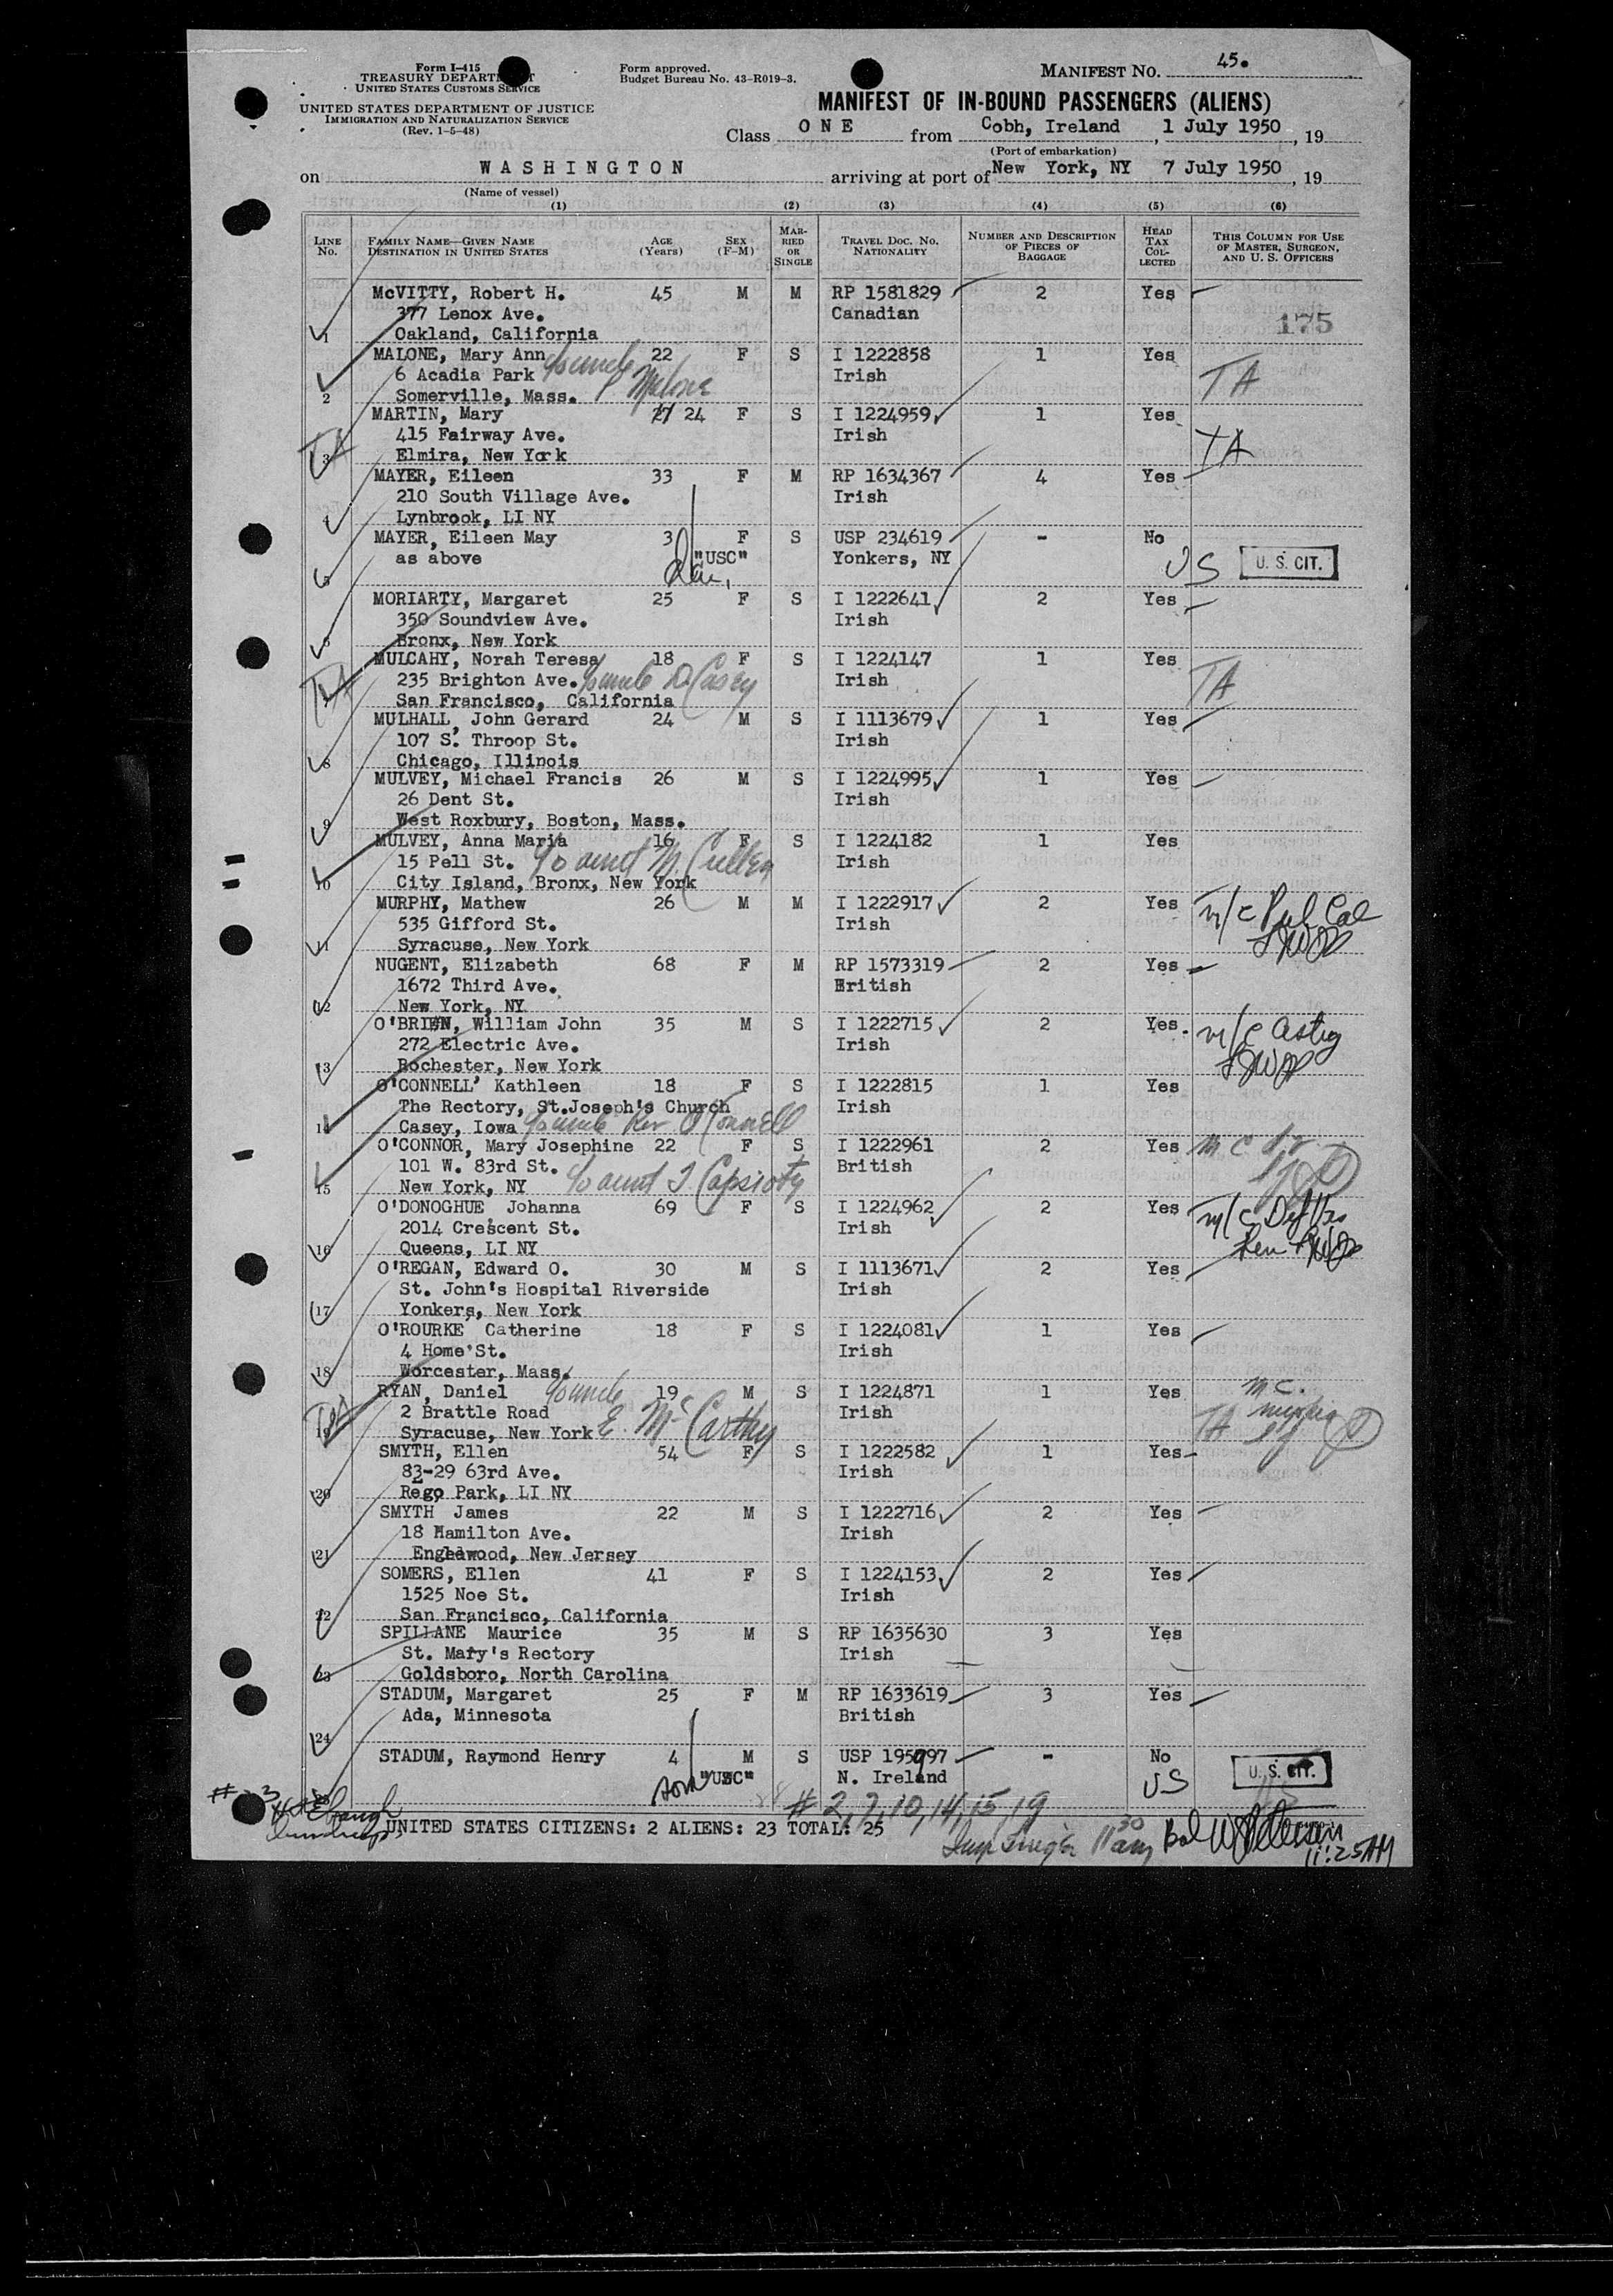 Form I-415
TREASURY DEPARTMENT
UNITED STATES CUSTOMS SERVICE
UNITED STATES DEPARTMENT OF JUSTICE
IMMIGRATION AND NATURALIZATION SERVICE
(Rev. 1-5-48)
Form approved.
Budget Bureau No. 43-R019-3.
MANIFEST No. 45.
MANIFEST OF IN-BOUND PASSENGERS (ALIENS)
Class O N E from Cobh, Ireland, 1 July 1950, 19
(Port of embarkation)
on W A S H I N G T O N arriving at port of New York, NY 7 July 1950, 19
(Name of vessel)
(1) (2) (3) (4) (5) (6)
LINE No. FAMILY NAME—GIVEN NAME DESTINATION IN UNITED STATES AGE (Years) SEX (F-M) MARRIED OR SINGLE TRAVEL DOC. NO. NATIONALITY NUMBER AND DESCRIPTION OF PIECES OF BAGGAGE HEAD TAX COLLECTED THIS COLUMN FOR USE OF MASTER, SURGEON, AND U. S. OFFICERS
McVITTY, Robert H. 45 M M RP 1581829 2 Yes
377 Lenox Ave. Canadian 175
1 Oakland, California
MALONE, Mary Ann 22 F S I 1222858 1 Yes
6 Acadia Park c/o uncle Irish TA
2 Somerville, Mass. P Malone
MARTIN, Mary 27 24 F S I 1224959 1 Yes
415 Fairway Ave. Irish TA
TA 3 Elmira, New York
MAYER, Eileen 33 F M RP 1634367 4 Yes
210 South Village Ave. Irish
4 Lynbrook, LI NY
MAYER, Eileen May 3 F S USP 234619 - No
as above "USC" Yonkers, NY US U. S. CIT.
5
MORIARTY, Margaret 25 F S I 1222641 2 Yes
350 Soundview Ave. Irish
6 Bronx, New York
MULCAHY, Norah Teresa 18 F S I 1224147 1 Yes
TA 235 Brighton Ave. c/o uncle D. Casey Irish TA
7 San Francisco, California
MULHALL, John Gerard 24 M S I 1113679 1 Yes
107 S. Throop St. Irish
8 Chicago, Illinois
MULVEY, Michael Francis 26 M S I 1224995 1 Yes
26 Dent St. Irish
9 West Roxbury, Boston, Mass.
MULVEY, Anna Maria 16 F S I 1224182 1 Yes
15 Pell St. c/o aunt M. Cullen Irish
10 City Island, Bronx, New York
MURPHY, Mathew 26 M M I 1222917 2 Yes m/c Pul Cal
535 Gifford St. Irish
11 Syracuse, New York
NUGENT, Elizabeth 68 F M RP 1573319 2 Yes
1672 Third Ave. British
12 New York, NY
O'BRIEN, William John 35 M S I 1222715 2 Yes. m/c
272 Electric Ave. Irish
13 Rochester, New York
O'CONNELL, Kathleen 18 F S I 1222815 1 Yes
The Rectory, St.Joseph's Church Irish
14 Casey, Iowa c/o uncle Rev. O'Connell
O'CONNOR, Mary Josephine 22 F S I 1222961 2 Yes M C
101 W. 83rd St. c/o aunt British
15 New York, NY
O'DONOGHUE, Johanna 69 F S I 1224962 2 Yes m/c Def Vis
2014 Crescent St. Irish
16 Queens, LI NY
O'REGAN, Edward O. 30 M S I 1113671 2 Yes
St. John's Hospital Riverside Irish
17 Yonkers, New York
O'ROURKE, Catherine 18 F S I 1224081 1 Yes
4 Home St. Irish
18 Worcester, Mass.
RYAN, Daniel c/o uncle 19 M S I 1224871 1 Yes M C.
2 Brattle Road E. McCarthy Irish TA
19 Syracuse, New York
SMYTH, Ellen 54 F S I 1222582 1 Yes
83-29 63rd Ave. Irish
20 Rego Park, LI NY
SMYTH James 22 M S I 1222716 2 Yes
18 Hamilton Ave. Irish
21 Englewood, New Jersey
SOMERS, Ellen 41 F S I 1224153 2 Yes
1525 Noe St. Irish
22 San Francisco, California
SPILLANE Maurice 35 M S RP 1635630 3 Yes
St. Mary's Rectory Irish
23 Goldsboro, North Carolina
STADUM, Margaret 25 F M RP 1633619 3 Yes
Ada, Minnesota British
24
STADUM, Raymond Henry 4 M S USP 195997 - No
son "USC" N. Ireland US U. S. CIT.
# 2, 7, 10, 14, 15, 19
UNITED STATES CITIZENS: 2 ALIENS: 23 TOTAL: 25
11 30 am
11:25AM